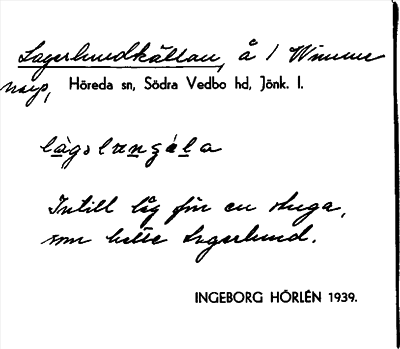 Lagerlundkällan, å / Wimmer
narp, Höreda sn, Södra Vedbo hd, Jönk. l.
Intill låg för en stuga,
som hette Lagerlund.
INGEBORG HÖRLÉN 1939.